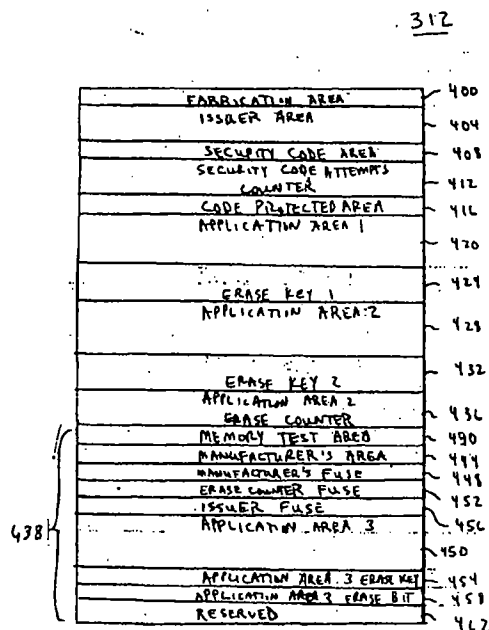 312
FABRICATION AREA 400
ISSUER AREA 404
SECURITY CODE AREA 408
SECURITY CODE ATTEMPTS
COUNTER 412
CODE PROTECTED AREA 416
APPLICATION AREA 1
420
424
ERASE KEY 1
APPLICATION AREA 2
428
432
ERASE KEY 2
APPLICATION AREA 2
ERASE COUNTER 436
MEMORY TEST AREA 440
MANUFACTURER'S AREA 444
MANUFACTURER'S FUSE 448
ERASE COUNTER FUSE 452
ISSUER FUSE 456
APPLICATION AREA 3
438 450
APPLICATION AREA 3 ERASE KEY 454
APPLICATION AREA 3 ERASE BIT 458
RESERVED 462